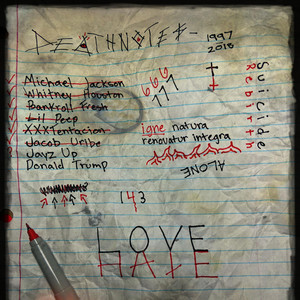 DEATHNOTE$-
1997
2018
Michael Jackson
Whitney Houston
Bankroll Fresh
Lil Peep
XXXTentacion
Jacob Uribe
Jayz Up
Donald Trump
666
777
Suicide
Rebirth
igne natura
renovatur integra
ALONE
143
LOVE
HATE